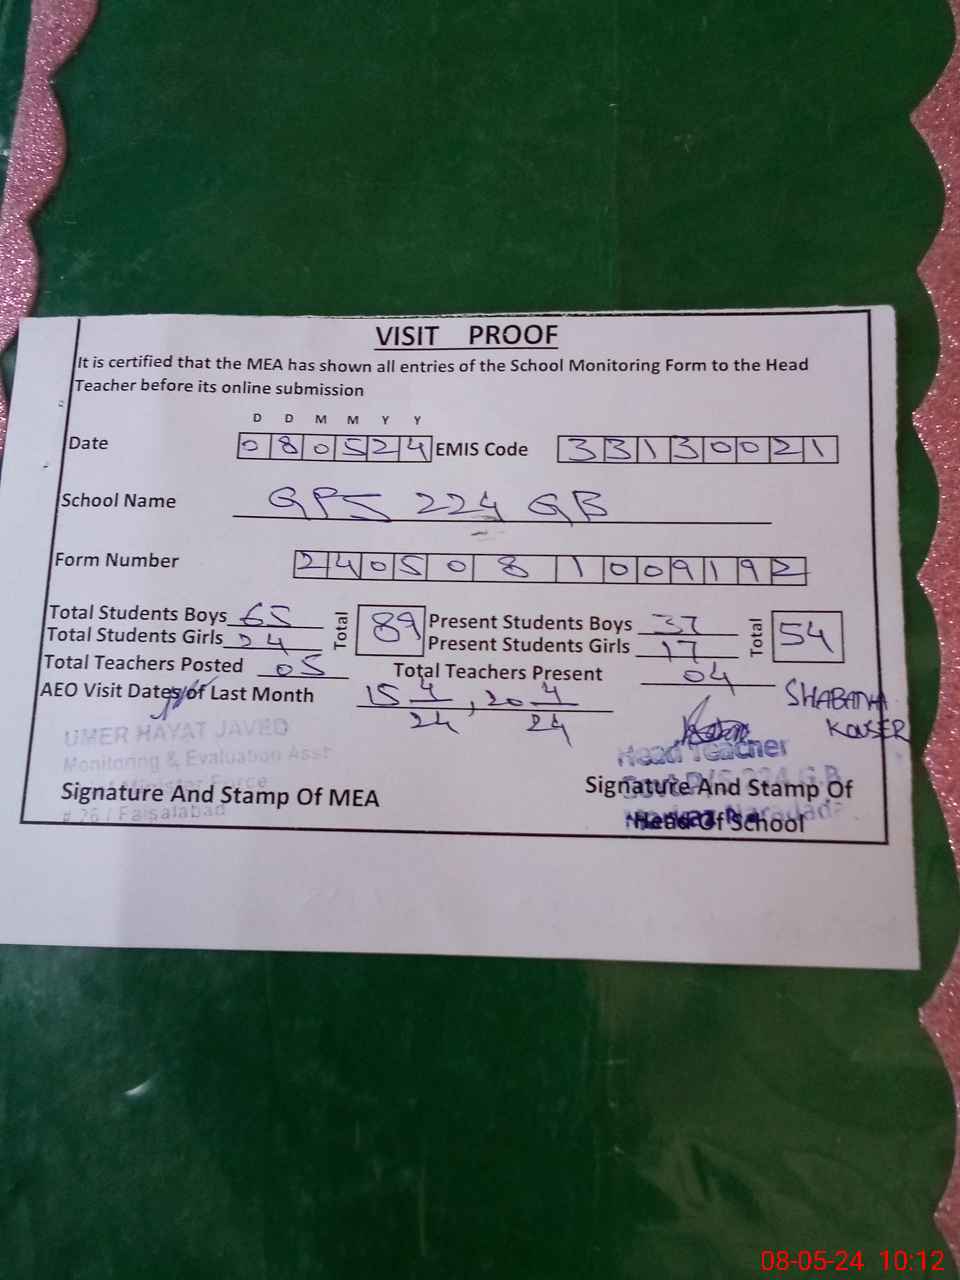 VISIT PROOF
It is certified that the MEA has shown all entries of the School Monitoring Form to the Head
Teacher before its online submission
D D M M Y Y
Date 080524 EMIS Code 33130021
School Name GPS 224 GB
Form Number 2405081009192
Total Students Boys 65 Total 89 Present Students Boys 37 Total 54
Total Students Girls 24 Present Students Girls 17
Total Teachers Posted 05 Total Teachers Present 04
AEO Visit Dates of Last Month 15 4/24, 20 4/24 SHABANA
KOUSER
UMER HAYAT JAVED
Head Teacher
Monitoring & Evaluation Asst
Signature And Stamp Of MEA Signature And Stamp Of
# 26 / Faisalabad
Head Of School
08-05-24 10:12